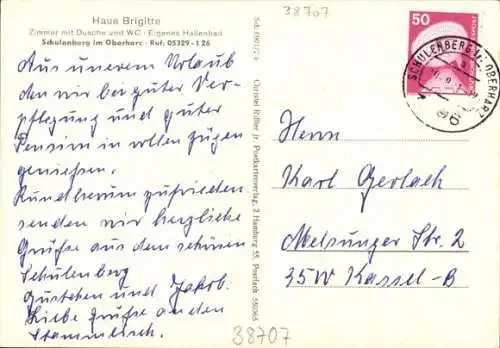 38707
Haus Brigitte
Zimmer mit Dusche und WC · Eigenes Hallenbad
Schulenberg im Oberharz · Ruf: 05329-1 26
Aus unserem Urlaub
den wir bei guter Ver-
pflegung und guter
Pension in vollen zügen
geniesen.
Rundherum zufrieden
senden wir herzliche
Grüße aus dem schönen
Schulenberg
Gustchen und Jakob.
Liebe Grüße an den
Stammtisch.
Christel Rillner jr. Postkartenverlag, 2 Hamburg 55, Postfach 550365
50
SCHULENBERG i. OBERHARZ
Herrn
Karl Gerlach
Melsunger Str. 2
35 W Kassel-B
38707